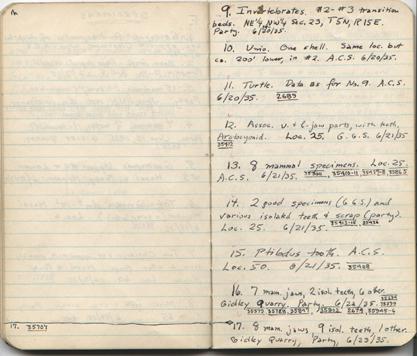 17. 35704
9. Invertebrates. #2-#3 transition
beds. NE¼ NW¼ Sec. 23, T5N, R15E.
Party. 6/20/35.
10. Unio. One shell. Same loc. but
ca. 200' lower, in #2. A.C.S. 6/20/35.
11. Turtle. Data as for No. 9. A.C.S.
6/20/35. 2685
12. Assoc. u. & l. jaw parts, with teeth,
Loc. 25. G.G.S. 6/21/35
13. 8 mammal specimens. Loc. 25.
A.C.S. 6/21/35.
14. 2 good specimens (G.G.S.) and
various isolated teeth & scrap (party).
Loc. 25. 6/21/35.
15. Ptilodus tooth. A.C.S.
Loc. 50. 6/21/35.
16. 7 mam. jaws, 2 isol. teeth, 6 other.
Gidley Quarry. Party. 6/22/35.
17. 8 mam. jaws, 9 isol. teeth, 1 other.
Gidley Quarry, Party, 6/23/35.